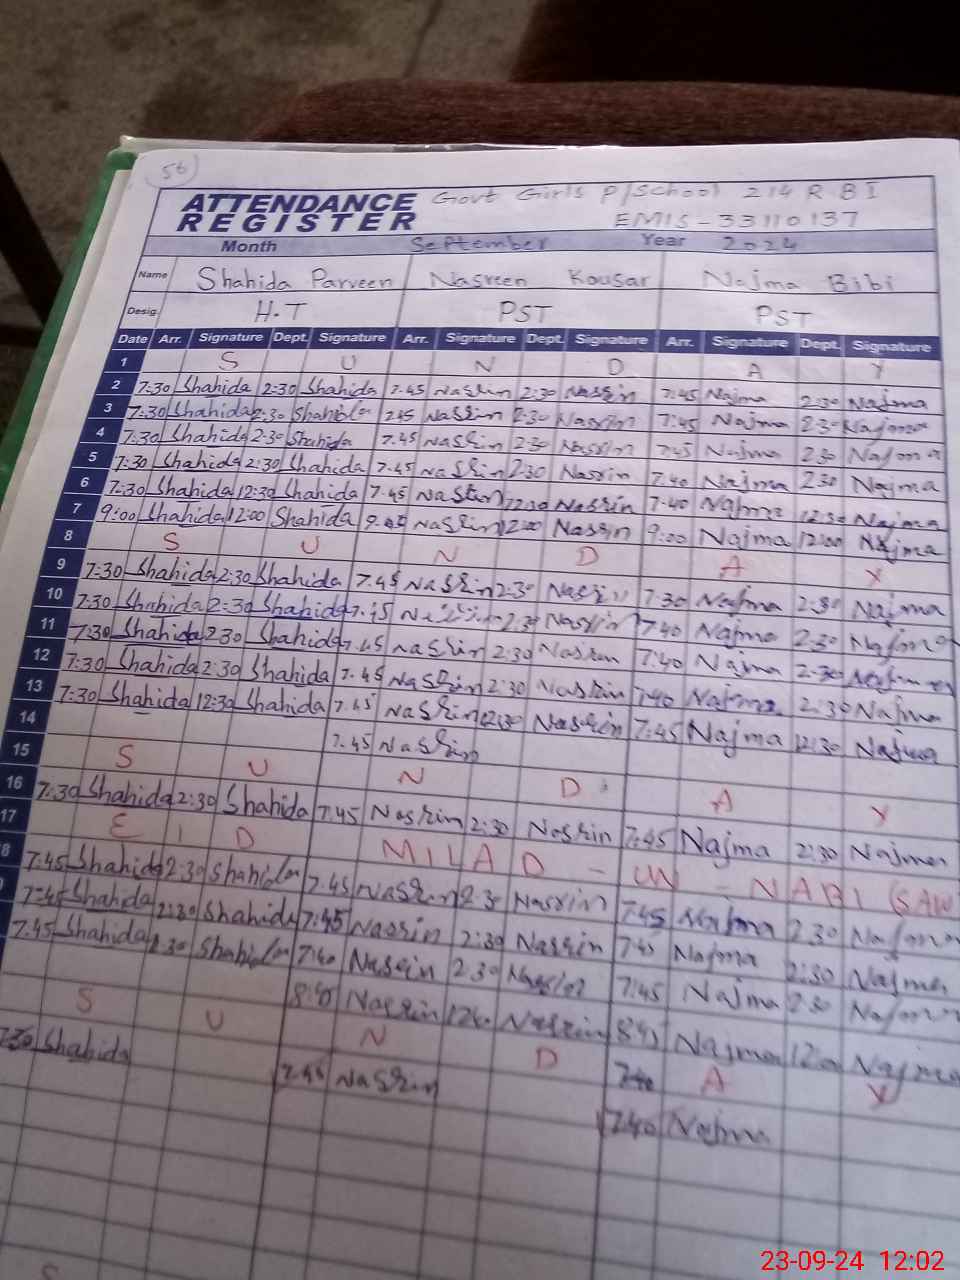 56
ATTENDANCE REGISTER Govt Girls P/School 214 R B I
EMIS-33110137
Month September Year 2024
Name Shahida Parveen Nasreen Kousar Najma Bibi
Desig. H.T PST PST
Date Arr. Signature Dept. Signature Arr. Signature Dept. Signature Arr. Signature Dept. Signature
1 S U N D A Y
2 7:30 Shahida 2:30 Shahida 7.45 Nasrin 2:30 Nasrin 7:45 Najma 2:30 Najma
3 7:30 Shahida 2:30 Shahida 7.45 Nasrin 2:30 Nasrin 7:45 Najma 2:30 Najma
4 7:30 Shahida 2:30 Shahida 7.45 Nasrin 2:30 Nasrin 7:45 Najma 2:30 Najma
5 7:30 Shahida 2:30 Shahida 7.45 Nasrin 2:30 Nasrin 7:40 Najma 2:30 Najma
6 7:30 Shahida 12:30 Shahida 7.45 Nasrin 12:30 Nasrin 7:40 Najma 12:30 Najma
7 9:00 Shahida 12:00 Shahida Nasrin 12:00 Nasrin 9:00 Najma 12:00 Najma
8 S U N D A Y
9 7:30 Shahida 2:30 Shahida 7.45 Nasrin 2:30 Nasrin 7:30 Najma 2:30 Najma
10 7:30 Shahida 2:30 Shahida 7.45 Nasrin 2:30 Nasrin 7:40 Najma 2:30 Najma
11 7:30 Shahida 2:30 Shahida 7.45 Nasrin 2:30 Nasrin 7:40 Najma 2:30 Najma
12 7:30 Shahida 2:30 Shahida 7.45 Nasrin 2:30 Nasrin 7:40 Najma 2:30 Najma
13 7:30 Shahida 12:30 Shahida 7.45 Nasrin 12:30 Nasrin 7:45 Najma 12:30 Najma
14 7.45 Nasrin
15 S U N D A Y
16 7:30 Shahida 2:30 Shahida 7:45 Nasrin 2:30 Nasrin 7:45 Najma 2:30 Najma
17 E I D MILAD - UN - NABI (SAW
8 7:45 Shahida 2:30 Shahida 7.45 Nasrin 2:30 Nasrin 7:45 Najma 2:30 Najma
7:45 Shahida 2:30 Shahida 7:45 Nasrin 2:30 Nasrin 7:45 Najma 2:30 Najma
7:45 Shahida 2:30 Shahida 7:40 Nasrin 2:30 Nasrin 7:45 Najma 2:30 Najma
Nasrin Nasrin Najma 12:00 Najma
S U N D A Y
7:30 Shahida 7.45 Nasrin 7:40
7:40 Najma
23-09-24 12:02